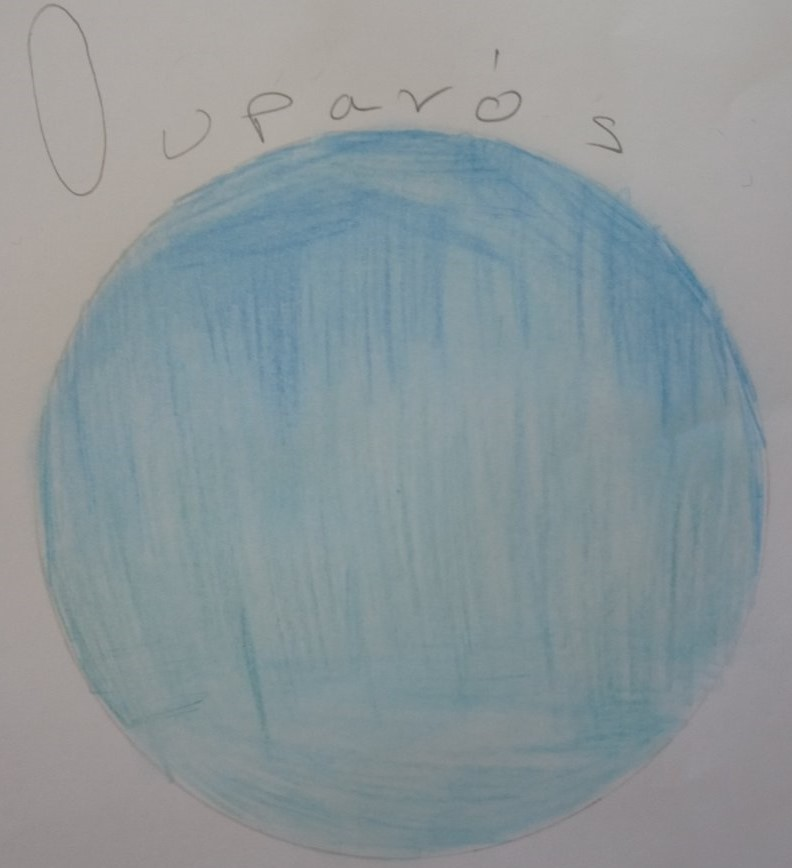 Ουρανός